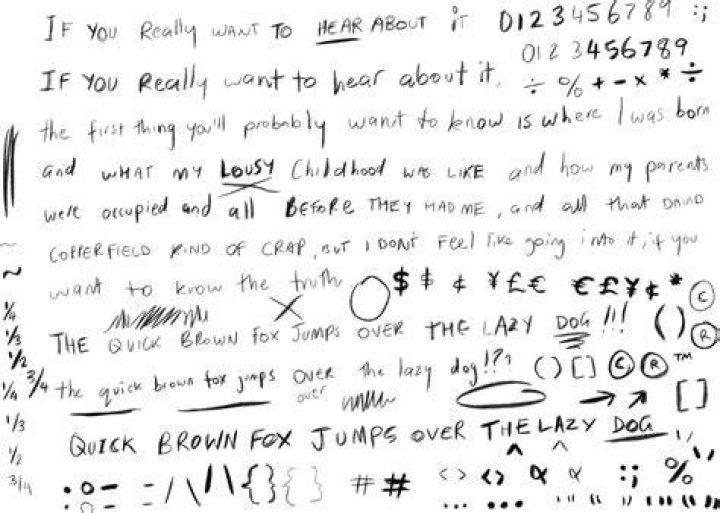 IF YOU Really WANT TO HEAR ABOUT iT 0123456789 :;
0123456789
IF YOU Really want to hear about it. ÷ % + - × * ÷
the first thing you'll probably want to know is where I was born
and WHAT MY LOUSY Childhood WAS LIKE and how my parents
were occupied and all BEFORE THEY HAD ME, and all that DAVID
COPPERFIELD KIND OF CRAP, BUT I DON'T Feel like going into it, if you
want to know the truth $ $ ¢ ¥ £ € € £ ¥ ¢ * ©
1/4
1/3 THE QUICK BROWN FOX JUMPS OVER THE LAZY DOG !!! ( ) ®
1/2
1/4 3/4 the quick brown fox jumps OVER the lazy dog!?? ( ) [ ] © ® ™
over [ ]
1/3 QUICK BROWN FOX JUMPS OVER THE LAZY DOG
1/2 ^ ^
3/4 = / \ / \ { } { } # # < > < > :; %
... ...